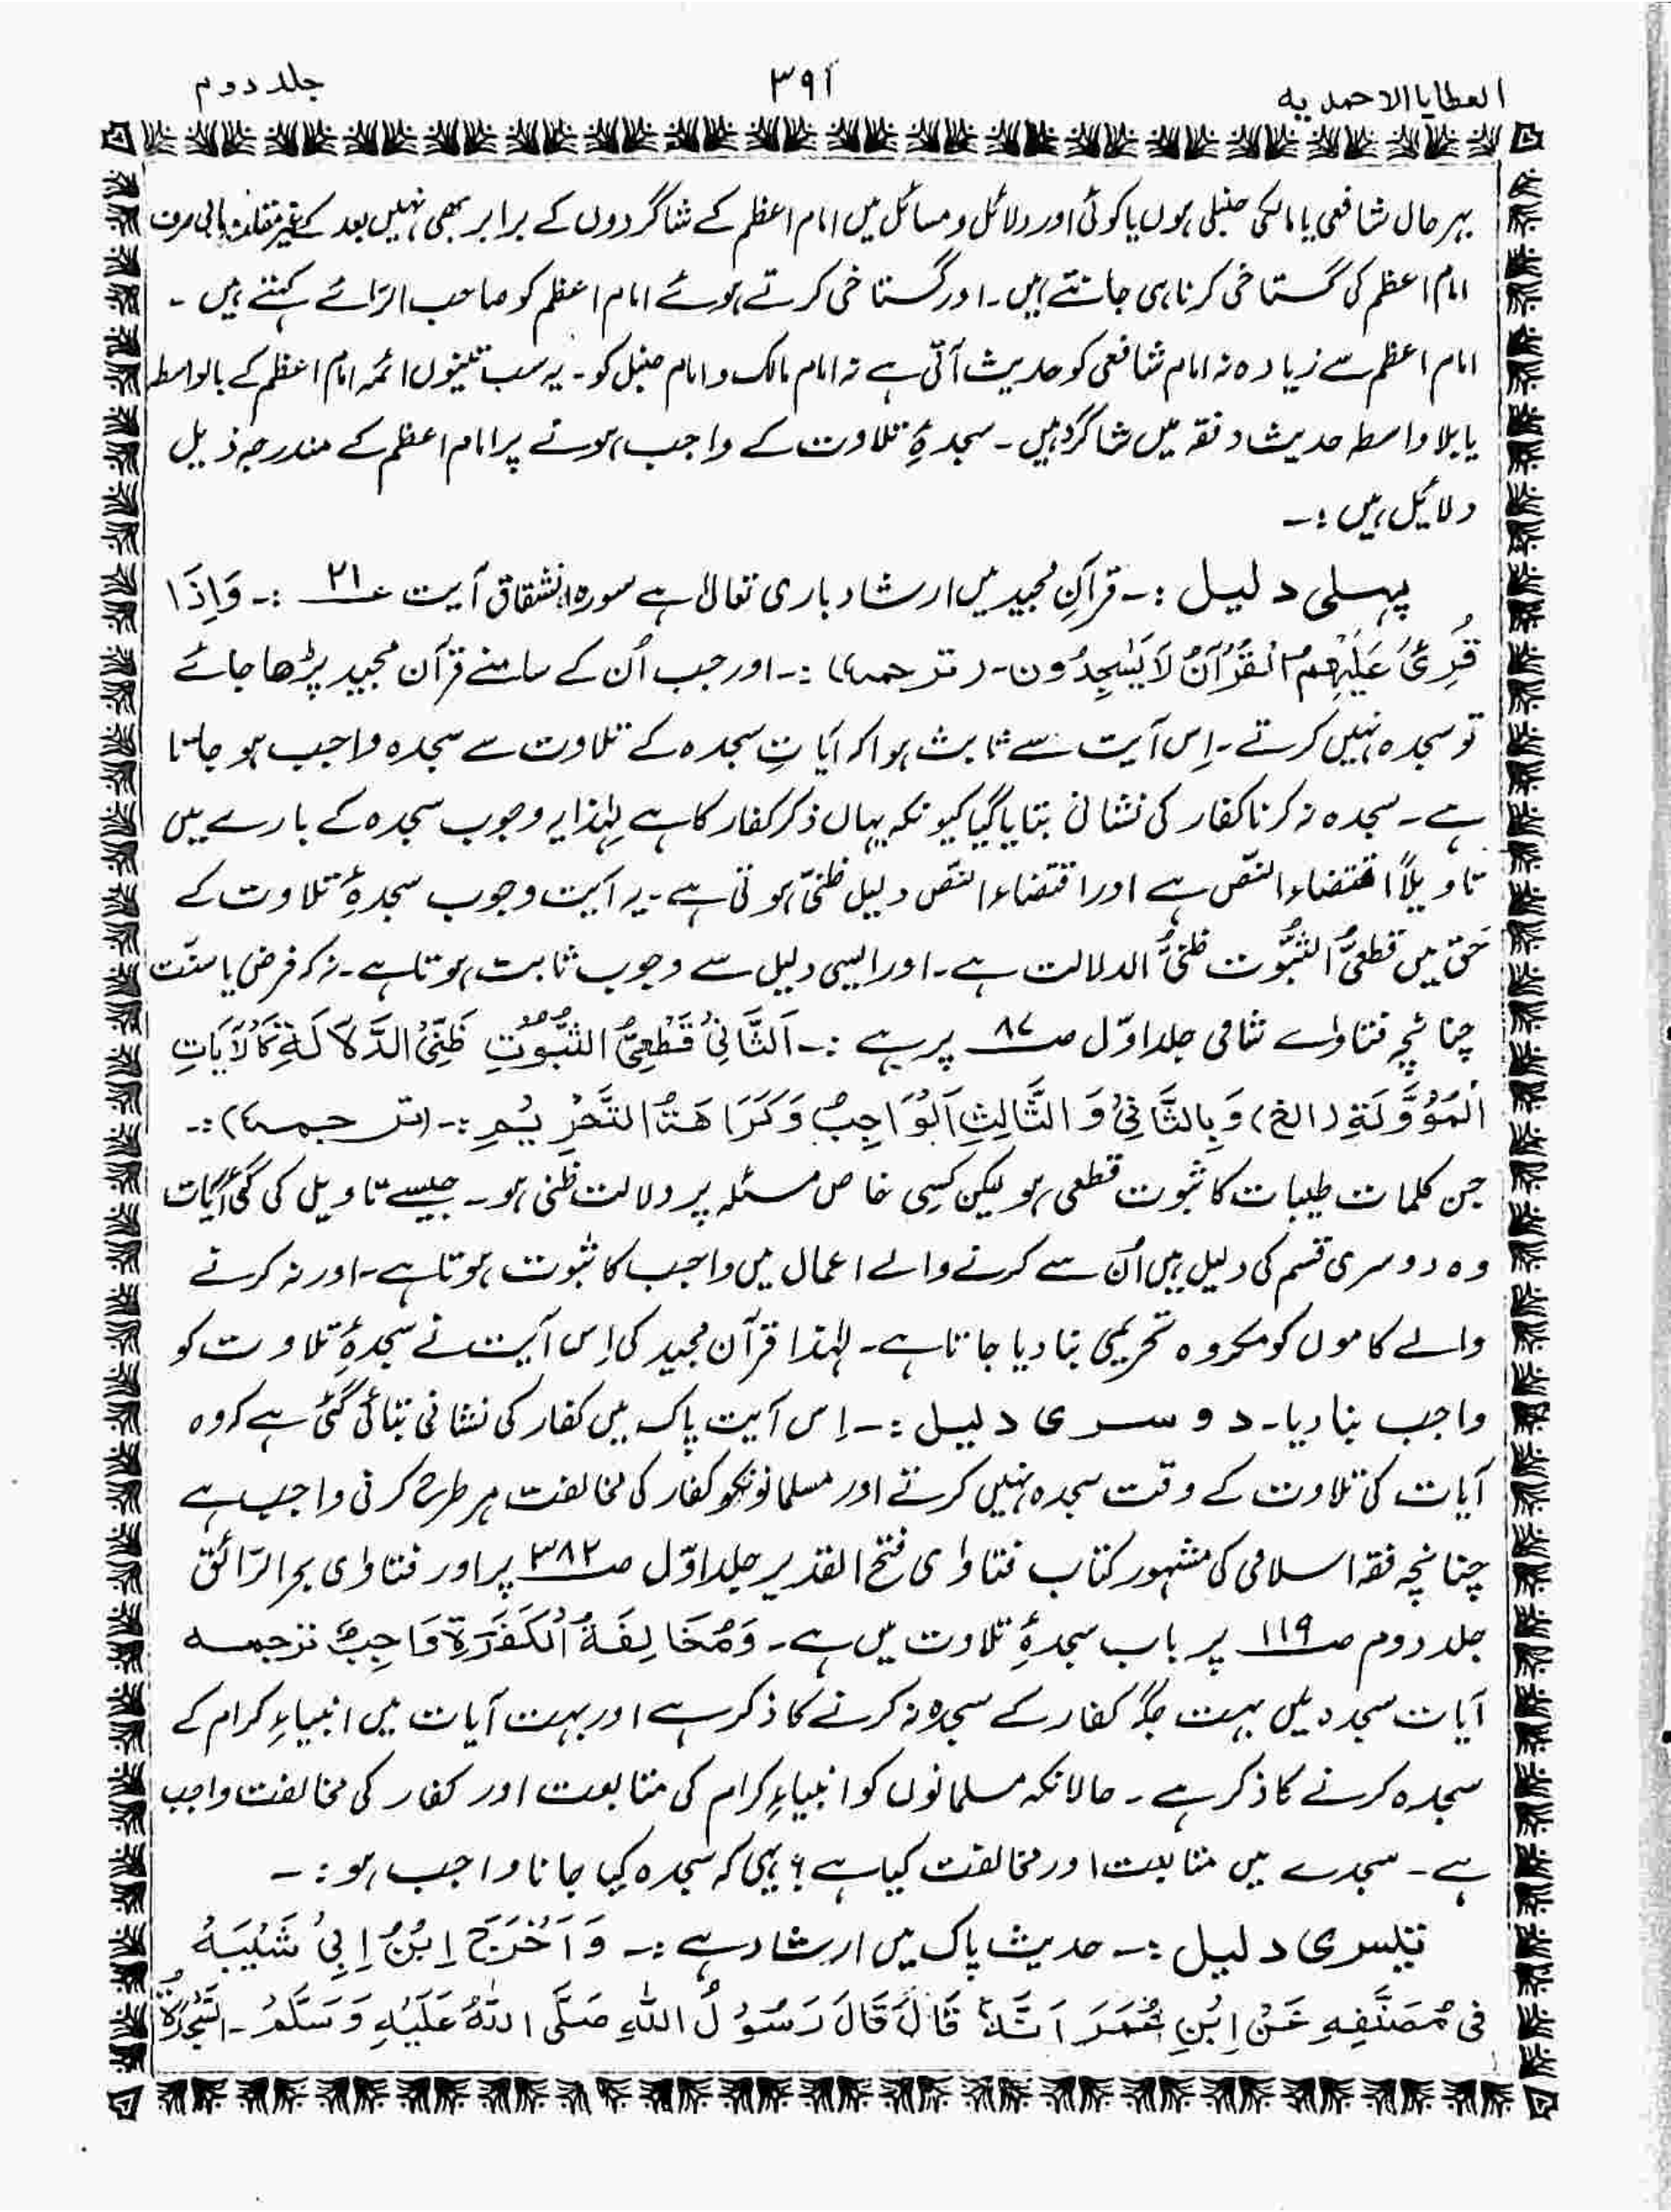 العطایا الاحمدیہ
۳۹۱
جلد دوم
بہر حال شافعی یا مالکی حنبلی ہوں یا کوئی اور دلائل و مسائل میں امام اعظم کے شاگردوں کے برابر بھی نہیں بعد کے غیر مقلد وہابی صرف
امام اعظم کی گستاخی کرنا ہی جانتے ہیں۔ اور گستاخی کرتے ہوئے امام اعظم کو صاحب الرّائے کہتے ہیں ۔
امام اعظم سے زیادہ نہ امام شافعی کو حدیث آتی ہے نہ امام مالک و امام حنبل کو۔ یہ سب تینوں ائمہ امام اعظم کے بالواسطہ
یا بلا واسطہ حدیث و فقہ میں شاگرد ہیں ۔ سجدۂِ تلاوت کے واجب ہونے پر امام اعظم کے مندرجہ ذیل
دلائیل ہیں :۔
پہلی دلیل :۔ قرآنِ مجید میں ارشاد باری تعالیٰ ہے سورہ انشقاق آیت ع۲۱ :۔ وَاِذَا
قُرِئَ عَلَیْهِمُ الْقُرْآنُ لَا یَسْجِدُون۔ (ترجمہ) :۔ اور جب اُن کے سامنے قرآن مجید پڑھا جائے
تو سجدہ نہیں کرتے۔ اِس آیت سے ثابت ہوا کہ آیاتِ سجدہ کے تلاوت سے سجدہ واجب ہو جاتا
ہے ۔ سجدہ نہ کرنا کفار کی نشانی بتایا گیا کیونکہ یہاں ذکر کفار کا ہے لہٰذا یہ وجوب سجدہ کے بارے میں
تاویلاً اقتضاء النّص ہے اور اقتضاء النّص دلیل ظنیّ ہوتی ہے ۔ یہ آیت وجوب سجدۂِ تلاوت کے
حَق میں قطعیُّ الثبُّوت ظنیُّ الدلالت ہے ۔ اور ایسی دلیل سے وجوب ثابت ہوتا ہے ۔ نہ کہ فرض یا سنّت
چنانچہ فتاواے شامی جلد اوّل صـ۸۷ پر ہے :۔ اَلثَّانِیْ قَطْعِیُّ الثُّبُوْتِ ظَنِّیُّ الدَّلَالَةِ کَالْاٰیَاتِ
الْمُؤَوَّلَةِ (الخ) وَ بِالثَّانِیْ وَ الثَّالِثِ اَلْوَاجِبُ وَ کَرَاهَةُ التَّحْرِیْمِ :۔ (ترجمہ) :۔
جن کلمات طیبات کا ثبوت قطعی ہو لیکن کسِی خاص مسئلہ پر دلالت ظنی ہو۔ جیسے تاویل کی گئی آیات
وہ دوسری قسم کی دلیل ہیں اُن سے کرنے والے اعمال میں واجب کا ثبوت ہوتا ہے ۔ اور نہ کرنے
والے کاموں کو مکروہ تحریمی بنا دیا جاتا ہے ۔ لہٰذا قرآن مجید کی اِس آیت نے سجدۂِ تلاوت کو
واجب بنا دیا۔ دوسری دلیل :۔ اِس آیت پاک میں کفار کی نشانی بتائی گئی ہے کہ وہ
آیات کی تلاوت کے وقت سجدہ نہیں کرتے اور مسلمانونکو کفار کی مخالفت ہر طرح کرنی واجب ہے
چنانچہ فقہ اسلامی کی مشہور کتاب فتاوای فتح القدیر جلد اوّل صـ۳۸۲ پر اور فتاوای بحر الرّائق
جلد دوم صـ۱۱۹ پر باب سجدۂِ تلاوت میں ہے ۔ وَمُخَالِفَةُ الْکَفَرَةِ وَاجِبٌ ترجمہ
آیات سجدہ میں بہت جگہ کفار کے سجدہ نہ کرنے کا ذکر ہے اور بہت آیات میں انبیاءِ کرام کے
سجدہ کرنے کا ذکر ہے ۔ حالانکہ مسلمانوں کو انبیاءِ کرام کی متابعت اور کفار کی مخالفت واجب
ہے ۔ سجدے میں متابعت اور مخالفت کیا ہے ؟ یہی کہ سجدہ کِیا جانا واجب ہو :۔
تیسری دلیل :۔ حدیث پاک میں ارشاد ہے :۔ وَ اَخْرَجَ اِبْنُ اِبِیْ شَیْبَہُ
فِی مُصَنَّفِهِ عَنْ اِبْنِ عُمَرَ اَنَّهٗ قَالَ قَالَ رَسُوْلُ اللهِ صَلَّی اللهُ عَلَیْهِ وَسَلَّمُ ۔ السَّجْدَةُ